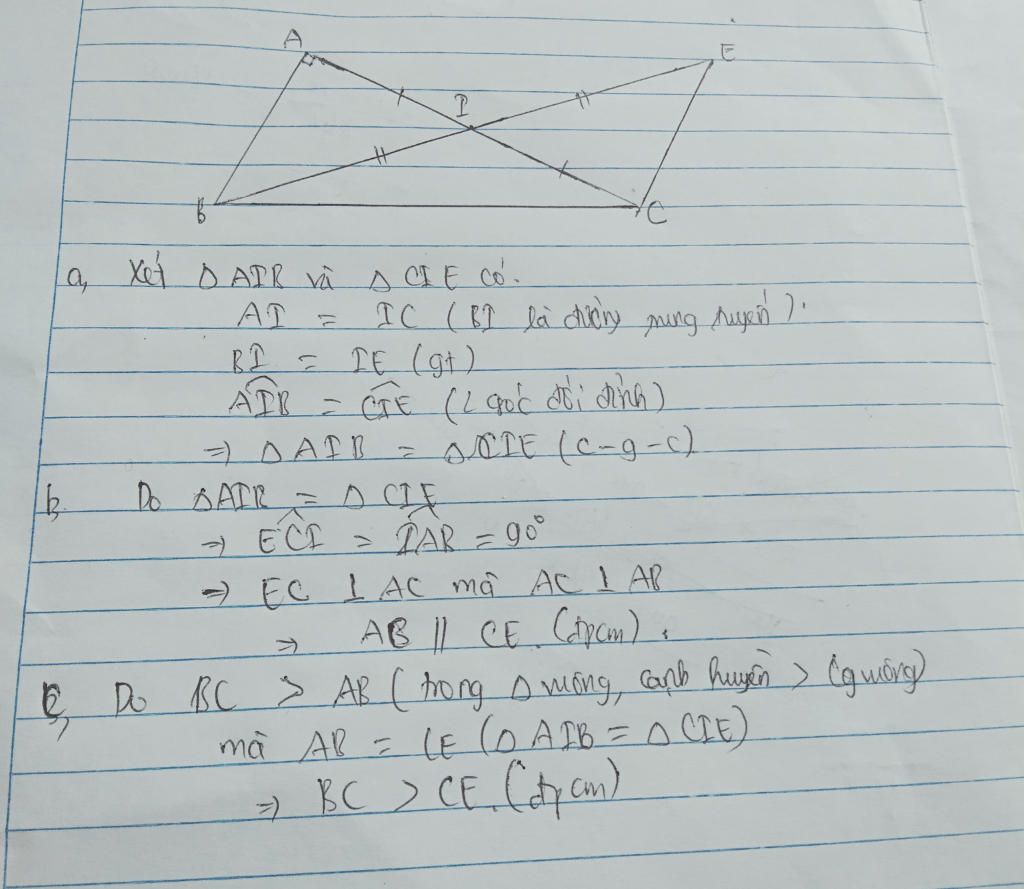 A
E
I
B
C
a, Xét Δ AIB và Δ CIE có.
AI = IC (BI là đường trung tuyến).
BI = IE (gt)
AIB = CIE (2 góc đối đỉnh)
⇒ Δ AIB = Δ CIE (c-g-c)
b. Do ΔAIB = Δ CIE
⇒ ECI = IAB = 90°
⇒ EC ⊥ AC mà AC ⊥ AB
⇒ AB // CE (đpcm).
c, Do BC > AB (trong Δ vuông, cạnh huyền > cgvuông)
mà AB = CE (Δ AIB = Δ CIE)
⇒ BC > CE. (đpcm)